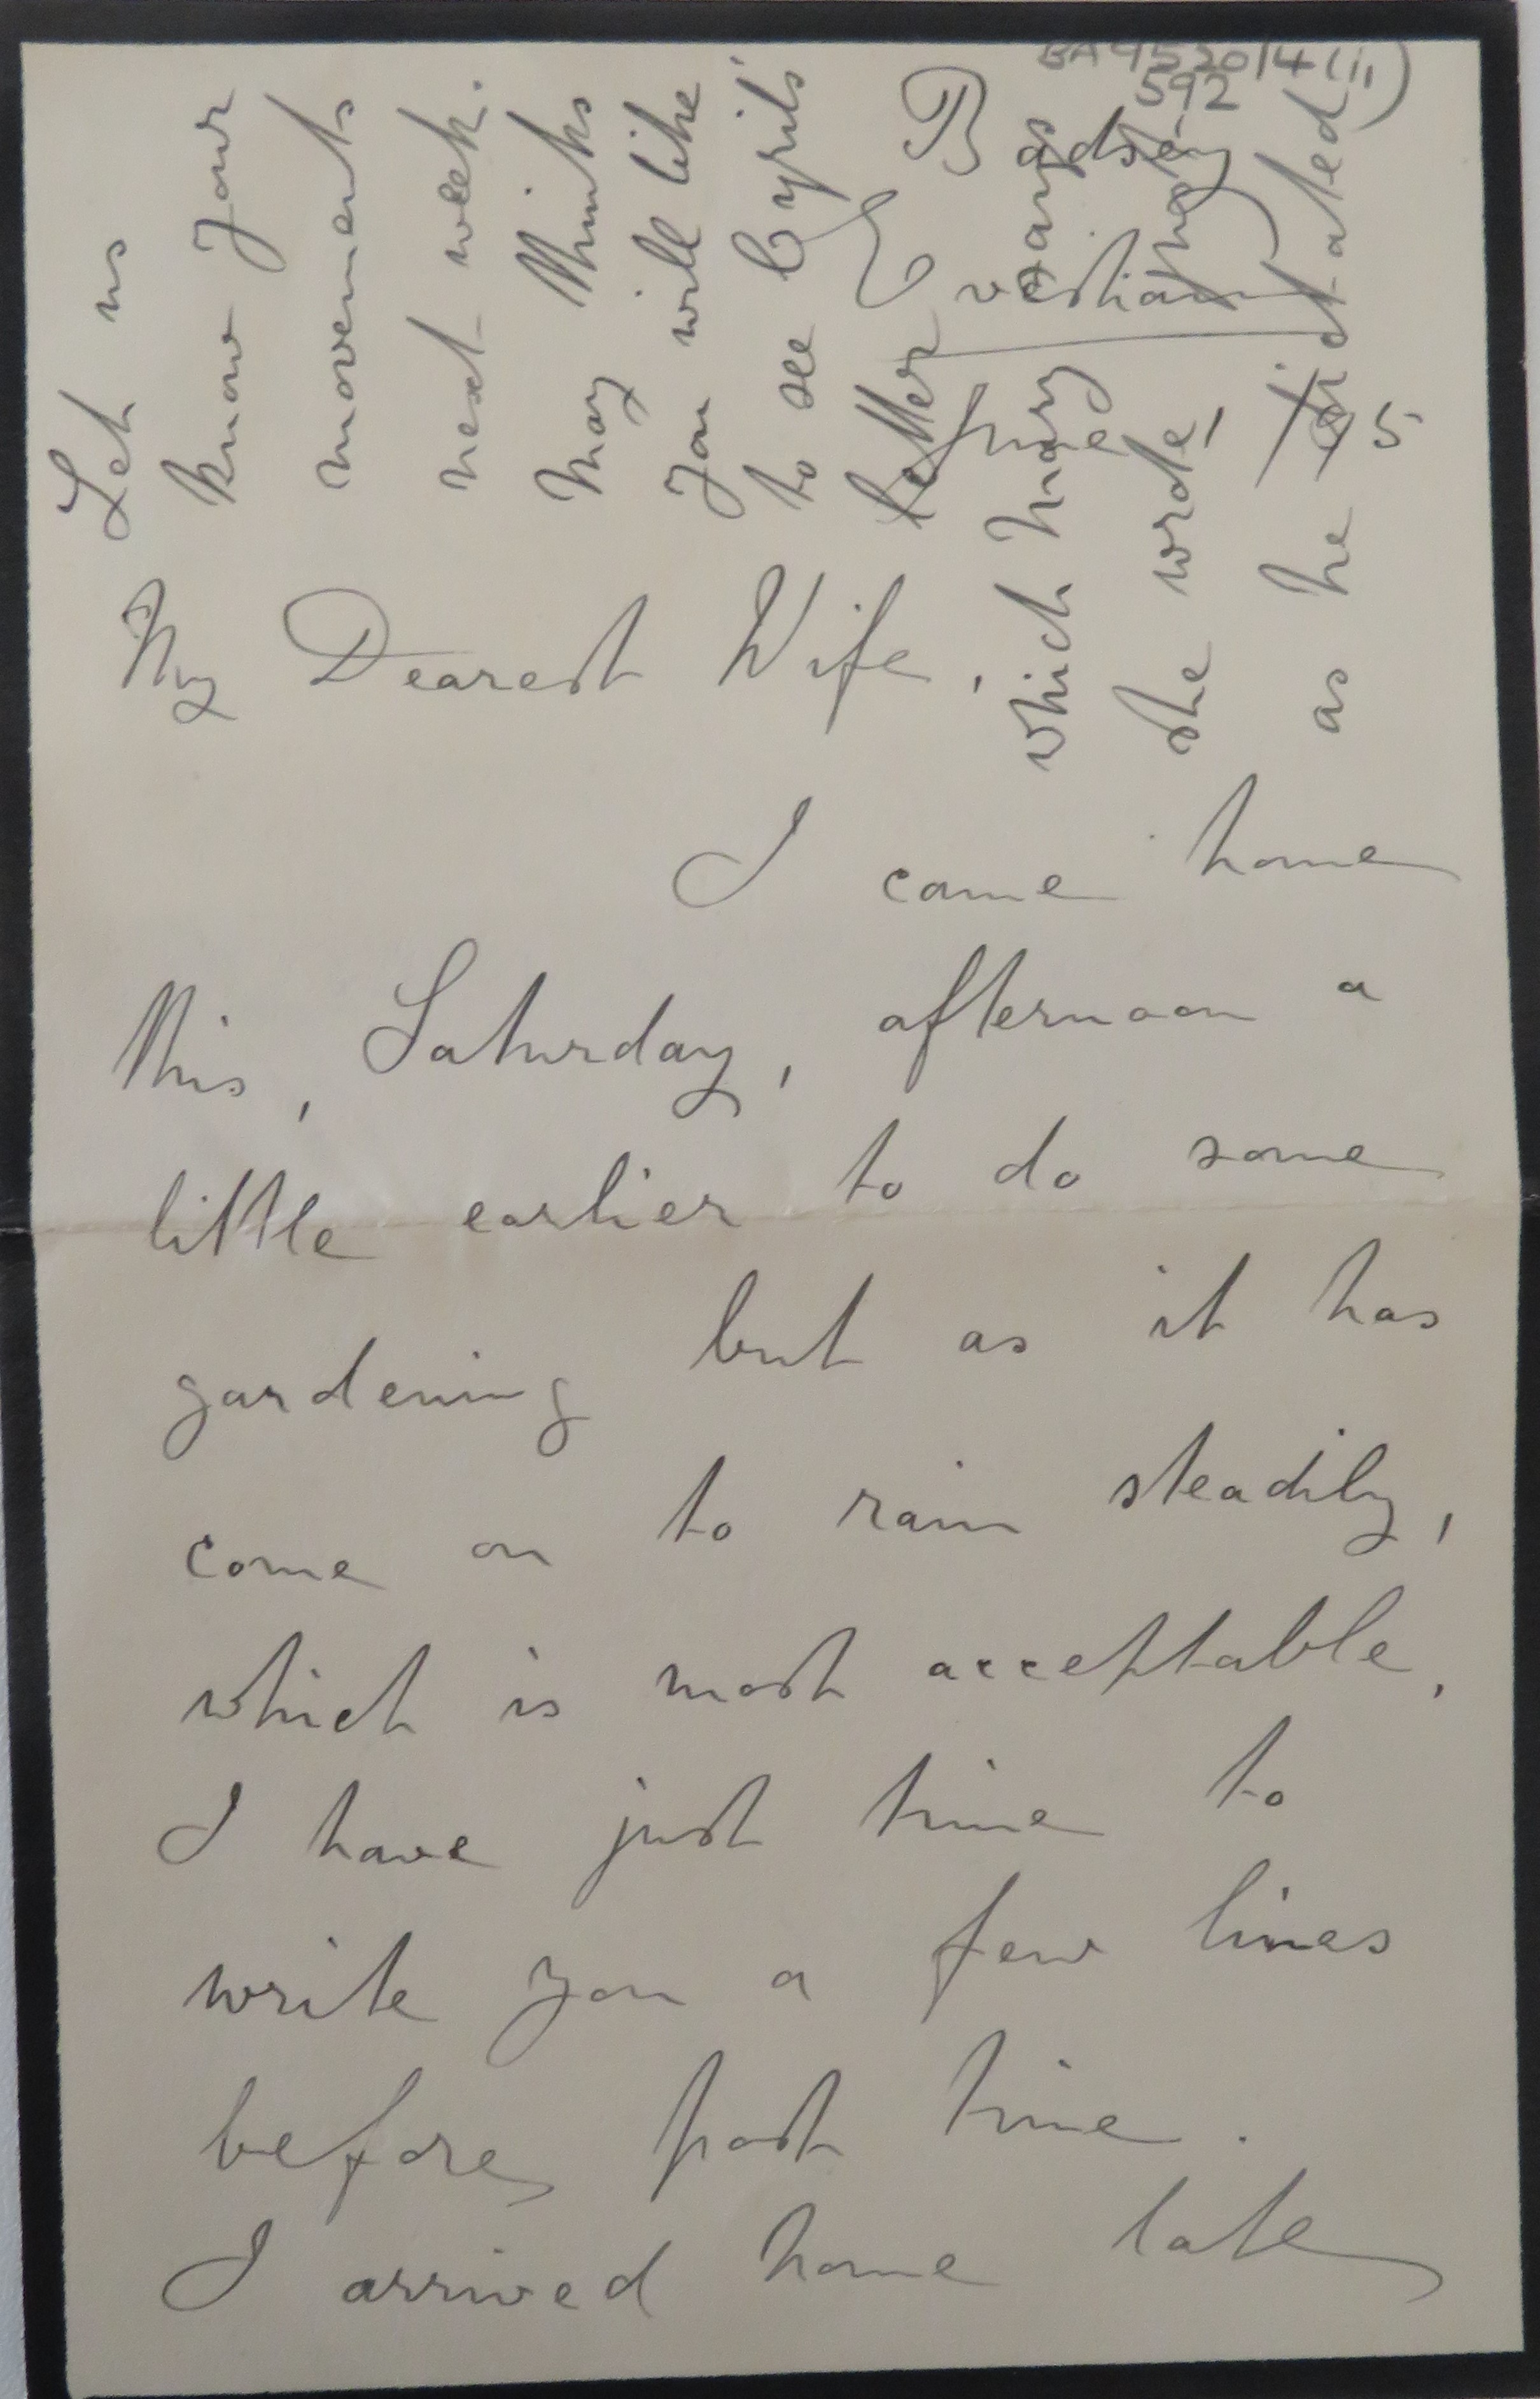 BA 9520/4(ii)
592
Badsey
Evesham
June 1/95
My Dearest Wife,
I came home
this, Saturday, afternoon a
little earlier to do some
gardening but as it has
come on to rain steadily,
which is most acceptable,
I have just time to
write you a few lines
before post time.
I arrived home late
Let us
know your
movements
next week.
May thinks
you will like
to see Cyril's
letter
which Mary says
she wrote,
as he dictated